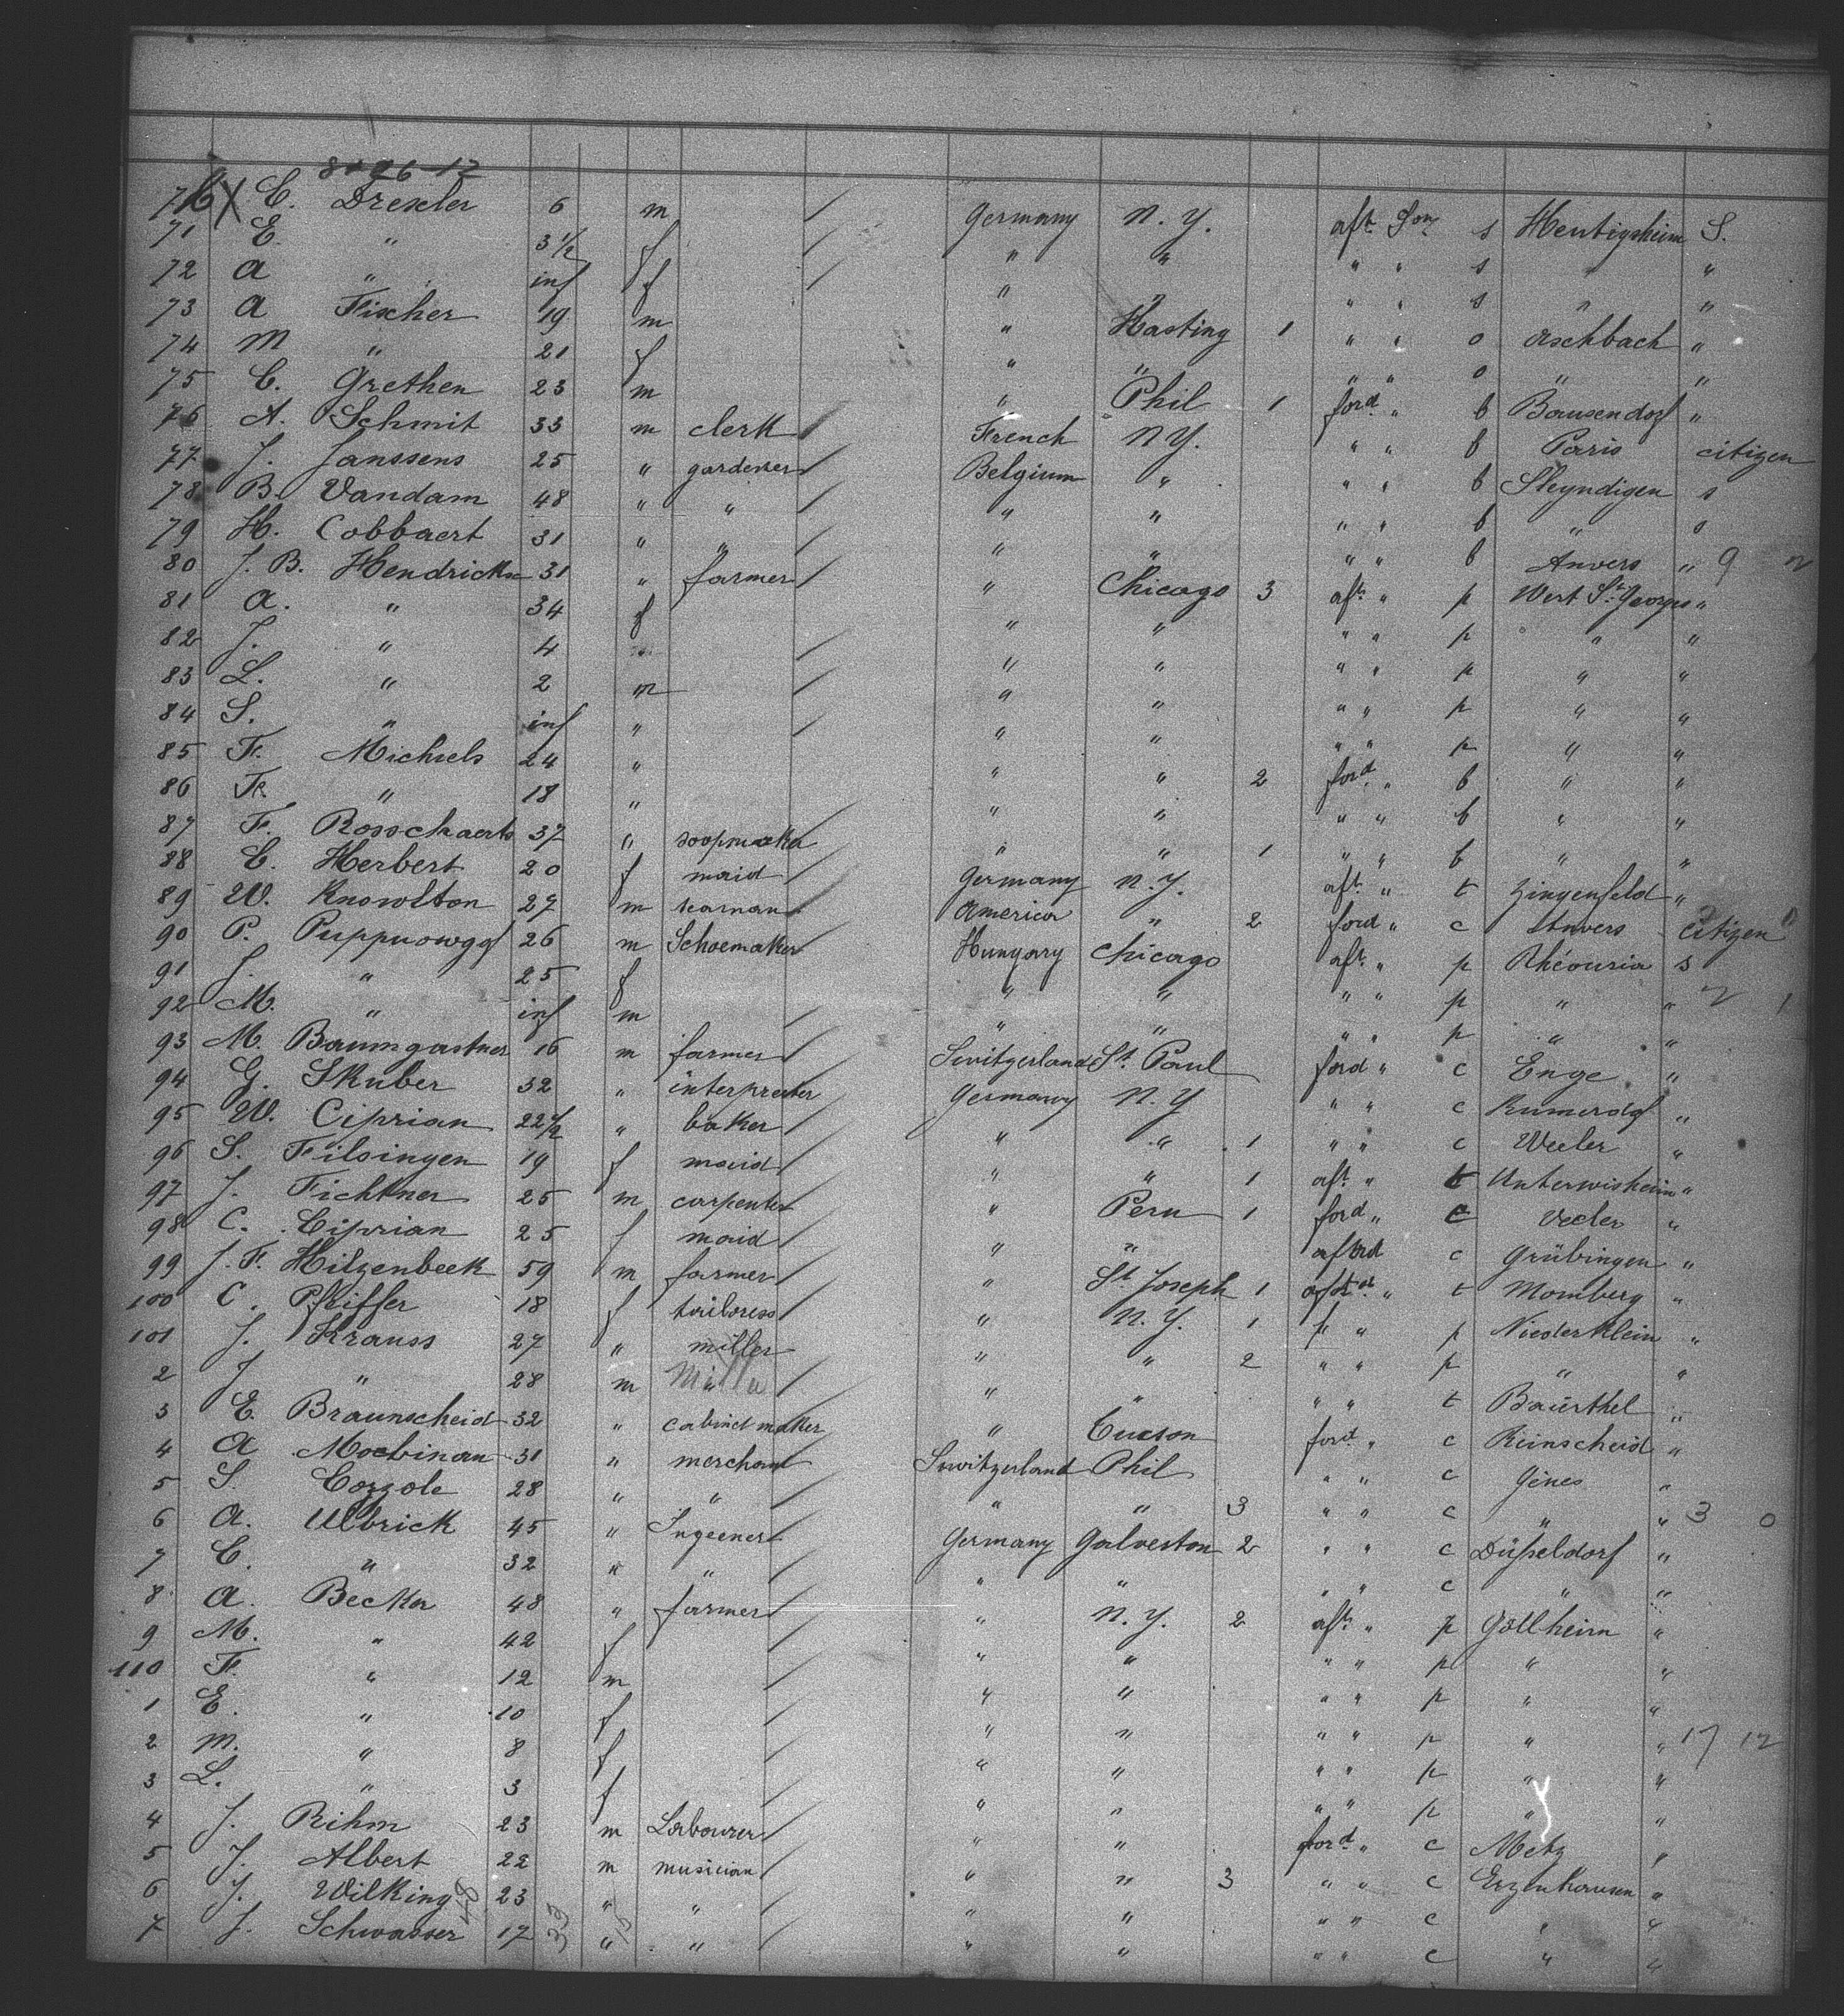 8+26-12
70 X C. Drexler 6 m / Germany N.Y. aft. Son s Hentigsheim S.
71 E. " 3 1/2 f / " " " " s " "
72 A " inf f / " " " " s " "
73 A Fischer 19 m " Hasting 1 " " o Aschbach "
74 M " 21 f " " " " o " "
75 C. Grethen 23 m " Phil 1 ford " b Bausendorf "
76 A. Schmit 33 m clerk / French N.Y. " " b Paris citizen
77 J. Janssens 25 " gardener / Belgium " " " b Sleyndigen s
78 B. Vandam 48 " " / " " " " b " s
79 H. Cobbaert 31 " " / " " " " b Anvers " 9 2
80 J. B. Hendrickx 31 " farmer / " Chicago 3 aft. " p Wert St. Georges "
81 A. " 34 f " " " " p " "
82 J. " 4 " / " " " " p " "
83 L. " 2 m / " " " " p " "
84 S. " inf " / " " " " p " "
85 F. Michiels 24 " " " 2 ford " b " "
86 Fr. " 18 " / " " " " b " "
87 F. Rosschaerts 37 " soopmaker / " " 1 " " b " "
88 E. Herbert 20 f maid / Germany N.Y. aft. " t Zingenfeld "
89 W. Knowlton 27 m seaman / America " 2 ford " c Anvers citizen
90 P. Puppuowggf 26 m Schoemaker / Hungary Chicago aft. " p Rhéouria s
91 J. " 25 f " " " " p " " 2 1
92 M. " inf m / " " " " p " "
93 M. Baumgastner 16 m farmer / Switzerland St. Paul ford " c Enge "
94 G. Skuber 32 " interpreter / Germany N.Y " " c Rumerdof "
95 W. Ciprian 22 1/2 " baker / " " 1 " " c Weeler "
96 S. Filsingen 19 f maid / " " 1 aft. " t Unterwisheim "
97 J. Fichtner 25 m carpenter / " Peru 1 ford " c Veeler "
98 C. Ciprian 25 f maid / " " c Grübingen "
99 J. F. Hilzenbeek 59 m farmer / " St. Joseph 1 " t Momberg "
100 C. Pfeiffer 18 f tailoress / " N.Y. 1 " " p Niederklein "
101 J. Krauss 27 " miller " " 2 " " p " "
2 J " 28 m Miller / " " " " t Baürthel "
3 E. Braunscheid 32 " cabinet maker / " Tucson ford " c Reinscheid "
4 A Mocbinan 31 " merchant / Switzerland Phil " " c Gènes "
5 S. Cozzole 28 " " / " " 3 " " c " " 3 0
6 A. Ulbrick 45 " Ingeener / Germany Galveston 2 " " c Düsseldorf "
7 C. " 32 " " / " " " " c " "
8 A. Becker 48 " farmer / " N.Y. 2 aft. " p Göllheim "
9 M. " 42 f / " " " " p " "
110 F. " 12 m / " " " " p " "
1 E. " 10 f / " " " " p " " 17 12
2 M. " 8 f " " " " p " "
3 L. " 3 f / " " " " p " "
4 J. Rihm 23 m Labourer / " " ford " c Metz "
5 J. Albert 22 m musician / " " 3 " " c Erzenhausen "
6 J. Wilking 23 " " / " " " " c " "
7 J. Schwasser 17 " " / " " " " c " "
48 33 15